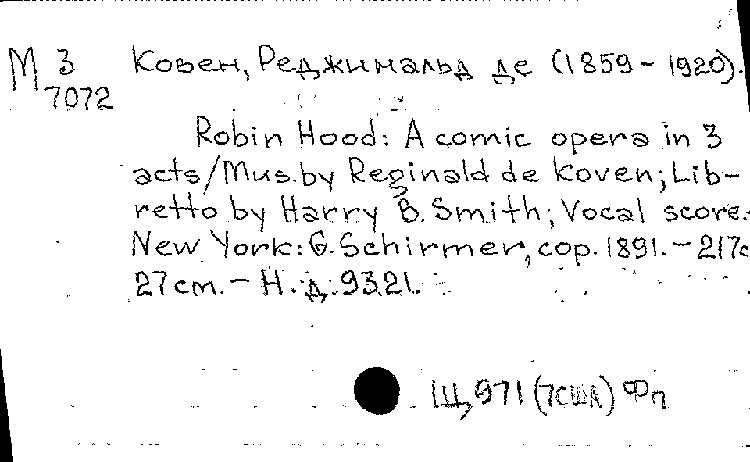 М 3 Ковен, Реджинальд де (1859-1920).
7072
Robin Hood: A comic opera in 3
acts/Mus. by Reginald de Koven; Lib-
retto by Harry B. Smith; Vocal score.-
New York: G. Schirmer, cop. 1891. - 217с
27cm. - Н. д. 9321.
Щ971(7США) Фп